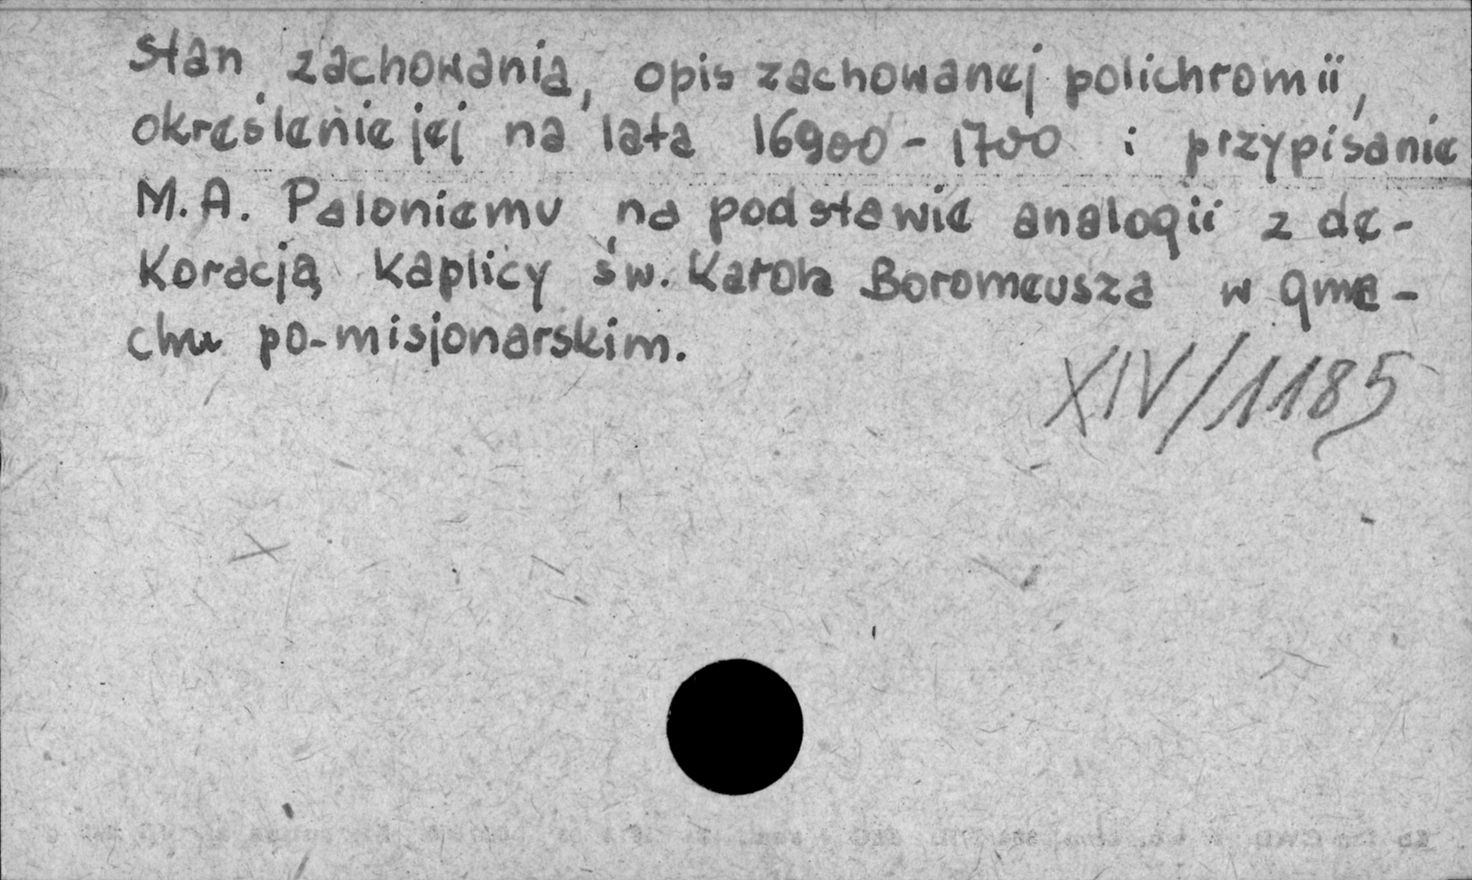 stan zachowania, opis zachowanej polichromii,
określenie jej na lata 16900 - 1700 i przypisanie
M.A. Paloniemu na podstawie analogii z de-
koracją kaplicy św. Karola Boromeusza w gma-
chu po-misjonarskim.
XIV/1185